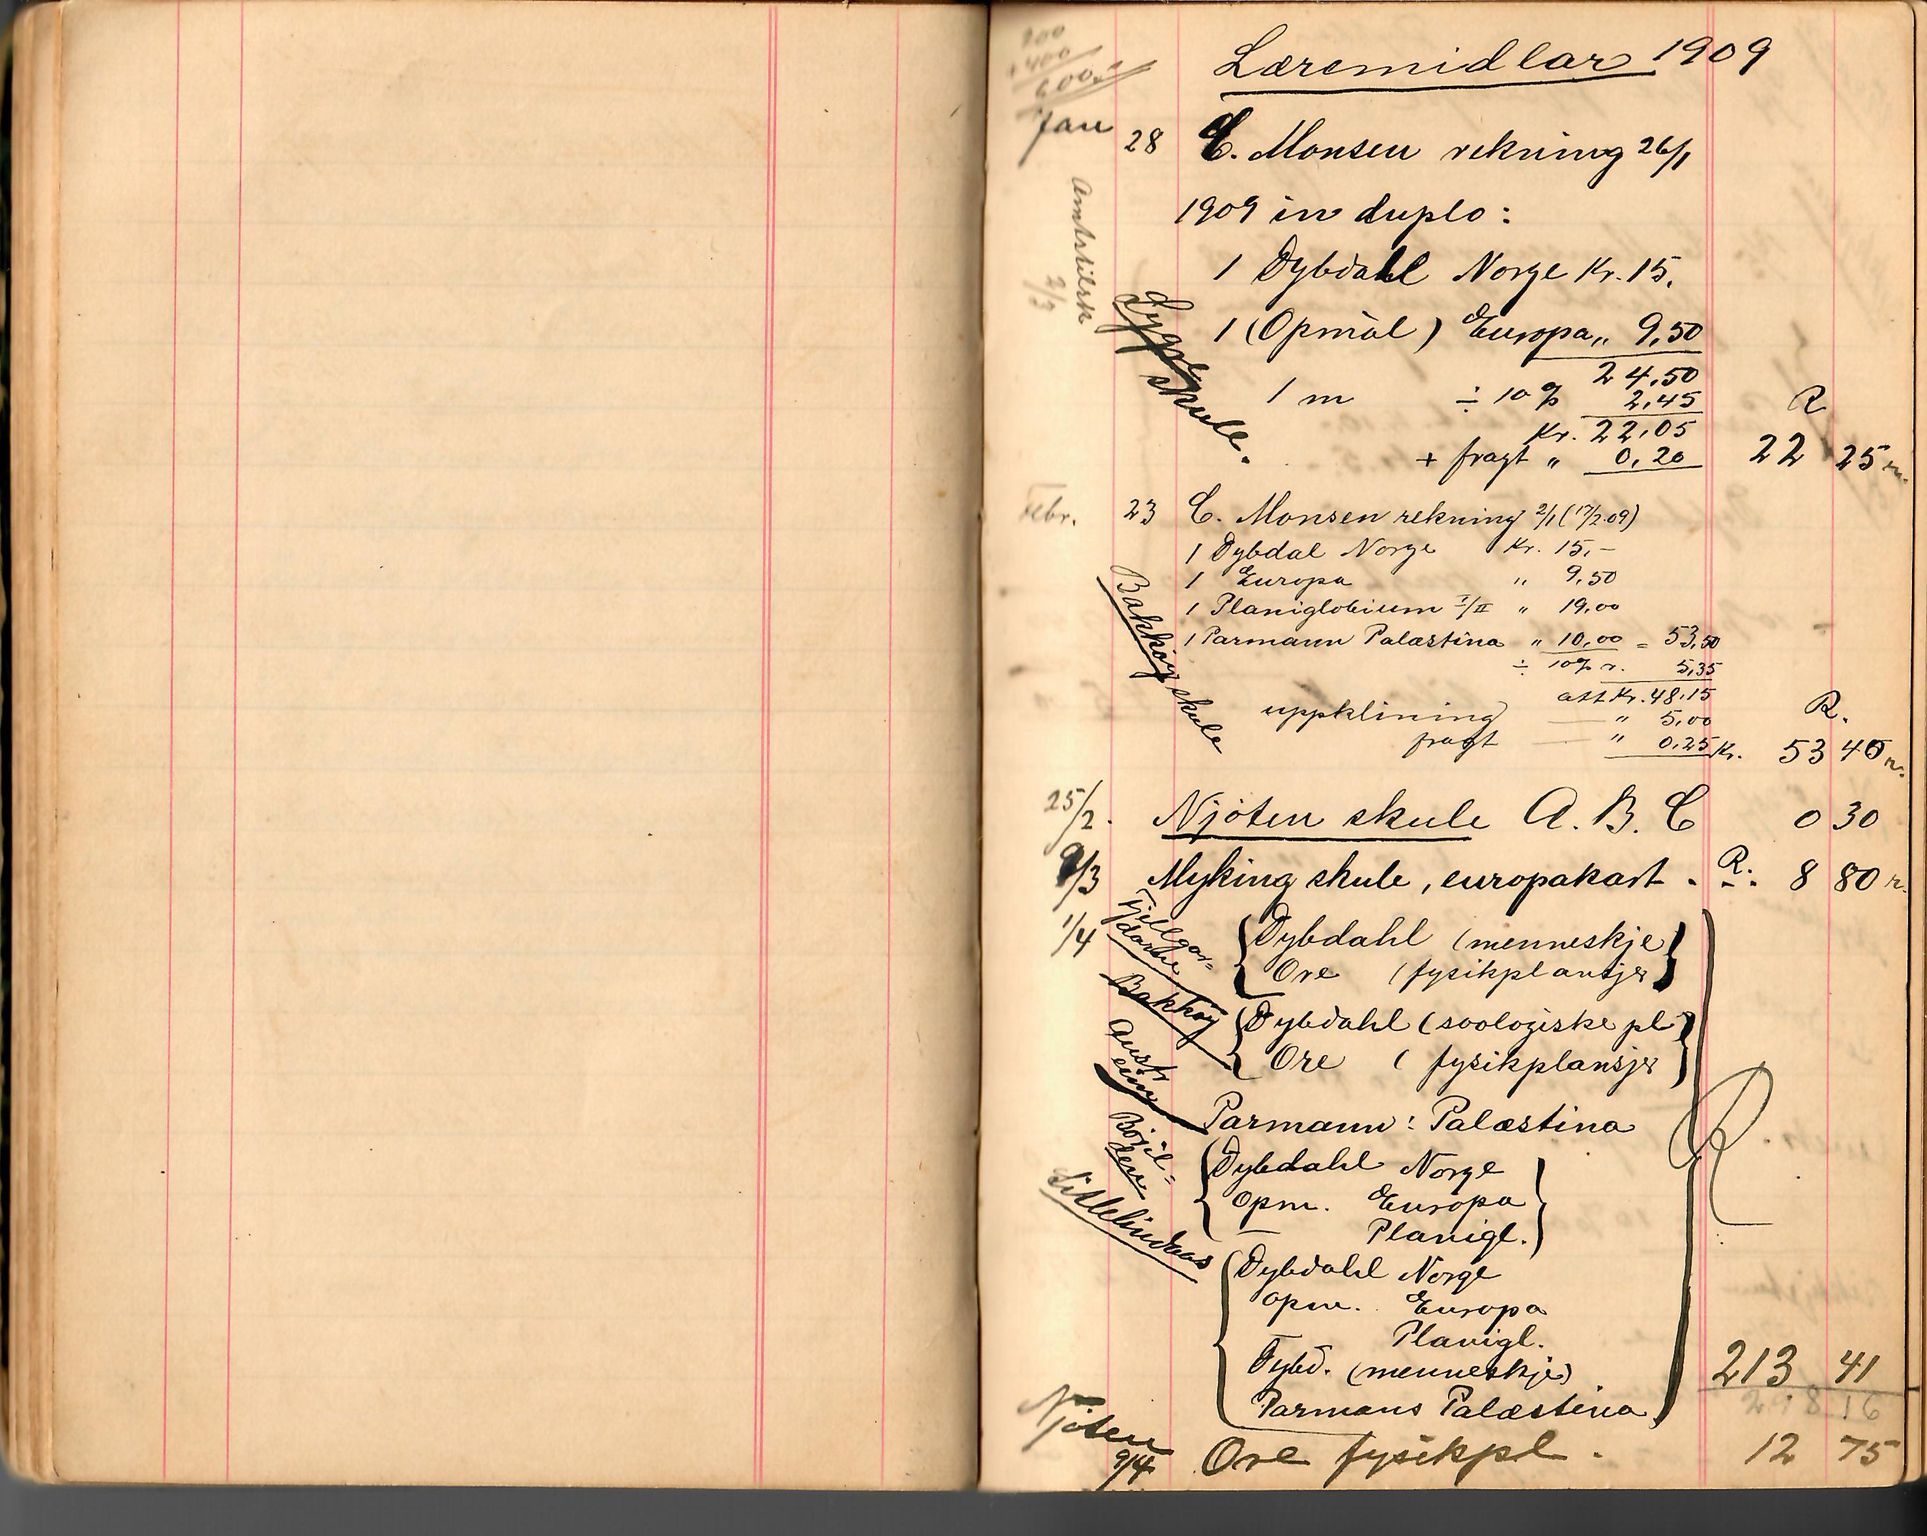 Læremidlar 1909
200
+400
600
Jan 28 C. Monsen rekning 26/1
1909 in duplo:
Amtstilsk
2/3
1 Dybdahl Norge Kr. 15.
Lygre skule.
1 (Opmål) Europa „ 9,50
24,50
1 m ÷ 10 % 2,45
Kr. 22,05 R
+ fragt „ 0,20 22 25
Febr. 23 C. Monsen rekning 2/1 (17/2 09)
1 Dybdal Norge Kr. 15,–
1 Europa „ 9,50
Bakkøy skule
1 Planiglobium I/II „ 19,00
1 Parmann Palæstina „ 10,00 = 53,50
÷ 10% r. 5,35
att Kr. 48,15 R.
uppklining — „ 5,00
fragt — „ 0,25 Kr. 53 40
25/2. Njøten skule A. B. C 0 30
9/3 Myking skule, europakart. R. 8 80
1/4 Fjellgardane
Dybdahl (menneskje)
Ore (fysikplansjer)
Bakkøy
Dybdahl (soologiske pl)
Ore (fysikplansjer
Austreim
Parmann: Palæstina R.
Bøjilden
Dybdahl Norge
Opm. Europa
Planigl.
Lillelindaas
Dybdahl Norge
opm. Europa
Planigl.
Dybd. (menneskje) 213 41
Parmans Palæstina 218 16
Njøten
9/4 Ore fysikpl. 12 75